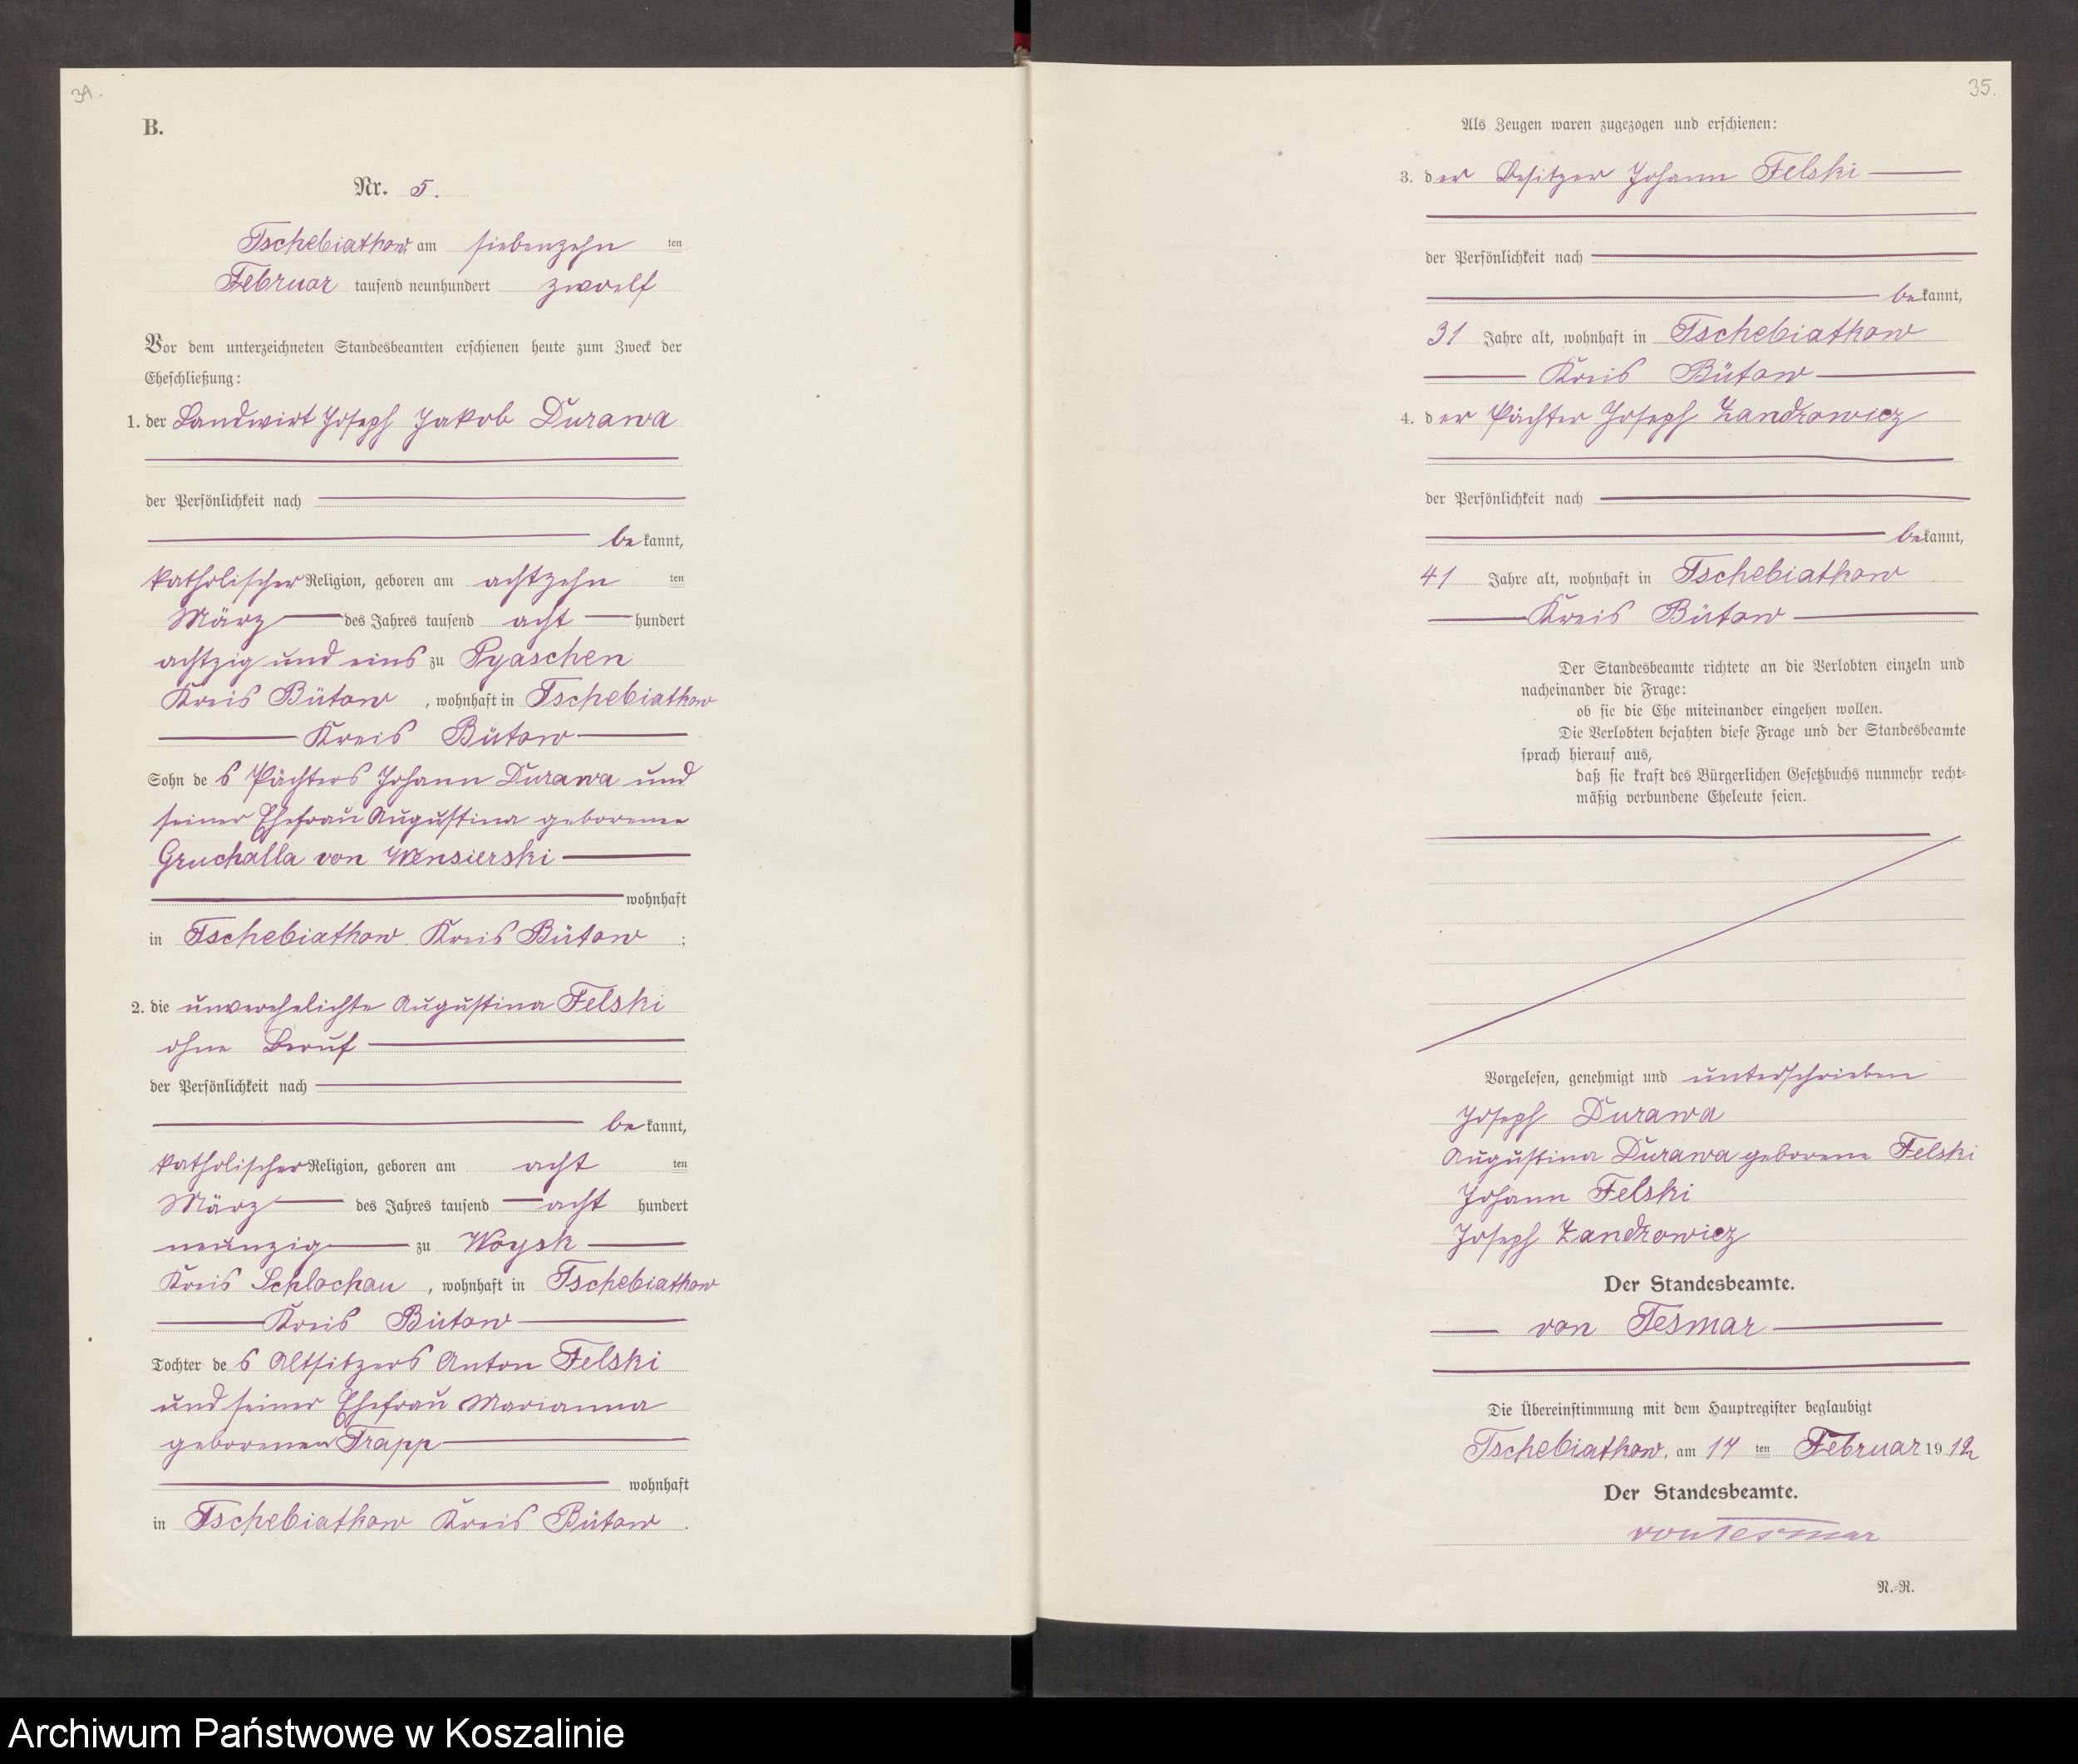 34.
B.
Nr. 5.
Tschebiatkow am siebenzehn ten
Februar tausend neunhundert zwoelf
Vor dem unterzeichneten Standesbeamten erschienen heute zum Zweck der
Eheschließung:
1. der Landwirt Joseph Jakob Durawa
der Persönlichkeit nach
bekannt,
katholischer Religion, geboren am achtzehn ten
März des Jahres tausend acht hundert
achtzig und eins zu Pyaschen
Kreis Bütow, wohnhaft in Tschebiatkow
Kreis Bütow
Sohn des Pächters Johann Durawa und
seiner Ehefrau Augustina geborene
Gruchalla von Wensierski
wohnhaft
in Tschebiatkow Kreis Bütow ;
2. die unverehelichte Augustina Felski
ohne Beruf
der Persönlichkeit nach
bekannt,
katholischer Religion, geboren am acht ten
März des Jahres tausend acht hundert
neunzig zu Woysk
Kreis Schlochau, wohnhaft in Tschebiatkow
Kreis Bütow
Tochter des Altsitzers Anton Felski
und seiner Ehefrau Marianna
geborenen Trapp
wohnhaft
in Tschebiatkow Kreis Bütow.
35.
Als Zeugen waren zugezogen und erschienen:
3. der Besitzer Johann Felski
der Persönlichkeit nach
bekannt,
31 Jahre alt, wohnhaft in Tschebiatkow
Kreis Bütow
4. der Pächter Joseph Zandrowicz
der Persönlichkeit nach
bekannt,
41 Jahre alt, wohnhaft in Tschebiatkow
Kreis Bütow
Der Standesbeamte richtete an die Verlobten einzeln und
nacheinander die Frage:
ob sie die Ehe miteinander eingehen wollen.
Die Verlobten bejahten diese Frage und der Standesbeamte
sprach hierauf aus,
daß sie kraft des Bürgerlichen Gesetzbuchs nunmehr recht-
mäßig verbundene Eheleute seien.
Vorgelesen, genehmigt und unterschrieben
Joseph Durawa
Augustina Durawa geborene Felski
Johann Felski
Joseph Zandrowicz
Der Standesbeamte.
von Tesmar
Die Übereinstimmung mit dem Hauptregister beglaubigt
Tschebiatkow, am 17 ten Februar 1912
Der Standesbeamte.
von Tesmar
N.-R.
Archiwum Państwowe w Koszalinie